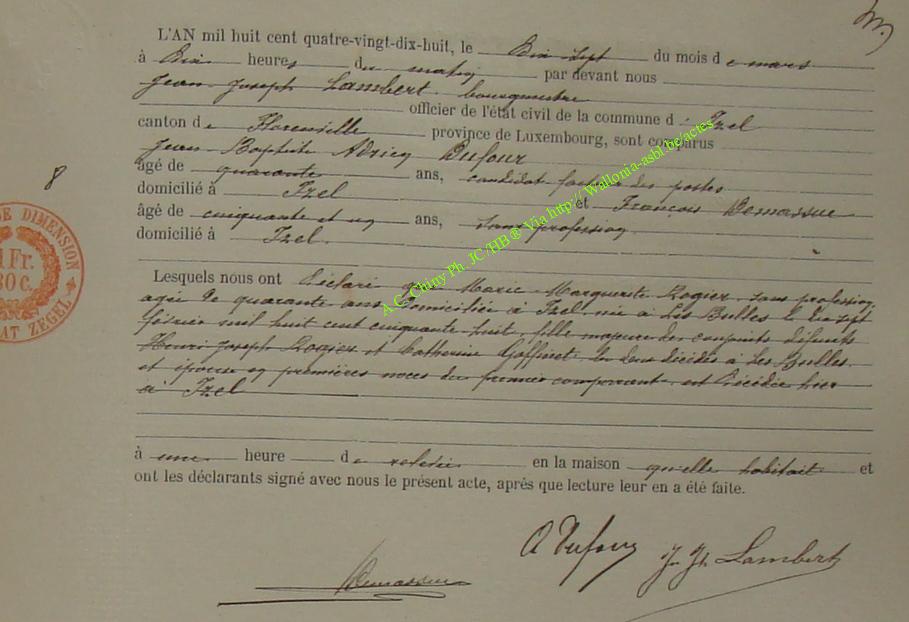 L'AN mil huit cent quatre-vingt-dix-huit, le Dix sept du mois d e mars
à Dix heures du matin par devant nous
Jean Joseph Lambert bourgmestre
officier de l'état civil de la commune d' Izel
canton de Florenville province de Luxembourg, sont comparus
Jean Baptiste Adrien Dufour
âgé de quarante ans, candidat facteur des postes
domicilié à Izel et François Demassue
âgé de cinquante et un ans, sans profession
domicilié à Izel.
8
E DIMENSION
1 Fr.
30 C.
AT ZEGEL
Lesquels nous ont déclaré que Marie Marguerite Rogier, sans profession,
agée de quarante ans, domiciliée à Izel, née à Les Bulles le dix sept
février mil huit cent cinquante huit, fille majeure des conjoints défunts
Henri Joseph Rogier et Catherine Goffinet les deux décédés à Les Bulles
et épouse en premières noces du premier comparant est décédée hier
à Izel
à une heure de relevée en la maison qu'elle habitait et
ont les déclarants signé avec nous le présent acte, après que lecture leur en a été faite.
A Dufour
J. Jh. Lambert
Demassue
A.C. Chiny Ph. JC/HB ® Via http://Wallonia-asbl.be/actes